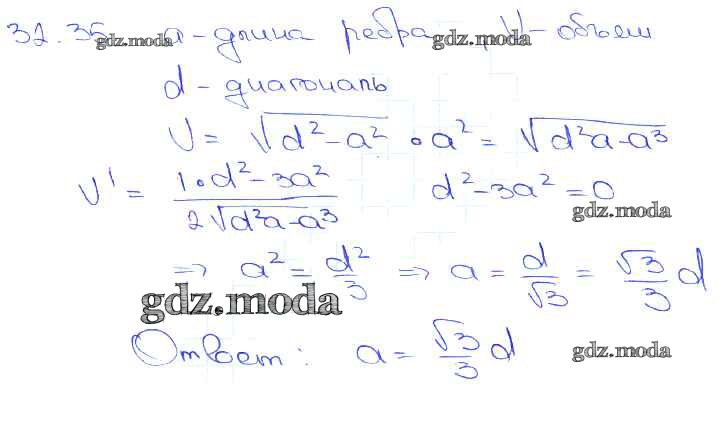 32.35 a - длина ребра V - объем
gdz.moda gdz.moda
d - диагональ
V = √(d² - a²) · a² = √(d²a - a³)
V' = (1 · d² - 3a²) / (2√(d²a - a³)) d² - 3a² = 0
gdz.moda
⇒ a² = d²/3 ⇒ a = d/√3 = √3/3 d
gdz.moda
Ответ: a = √3/3 d
gdz.moda